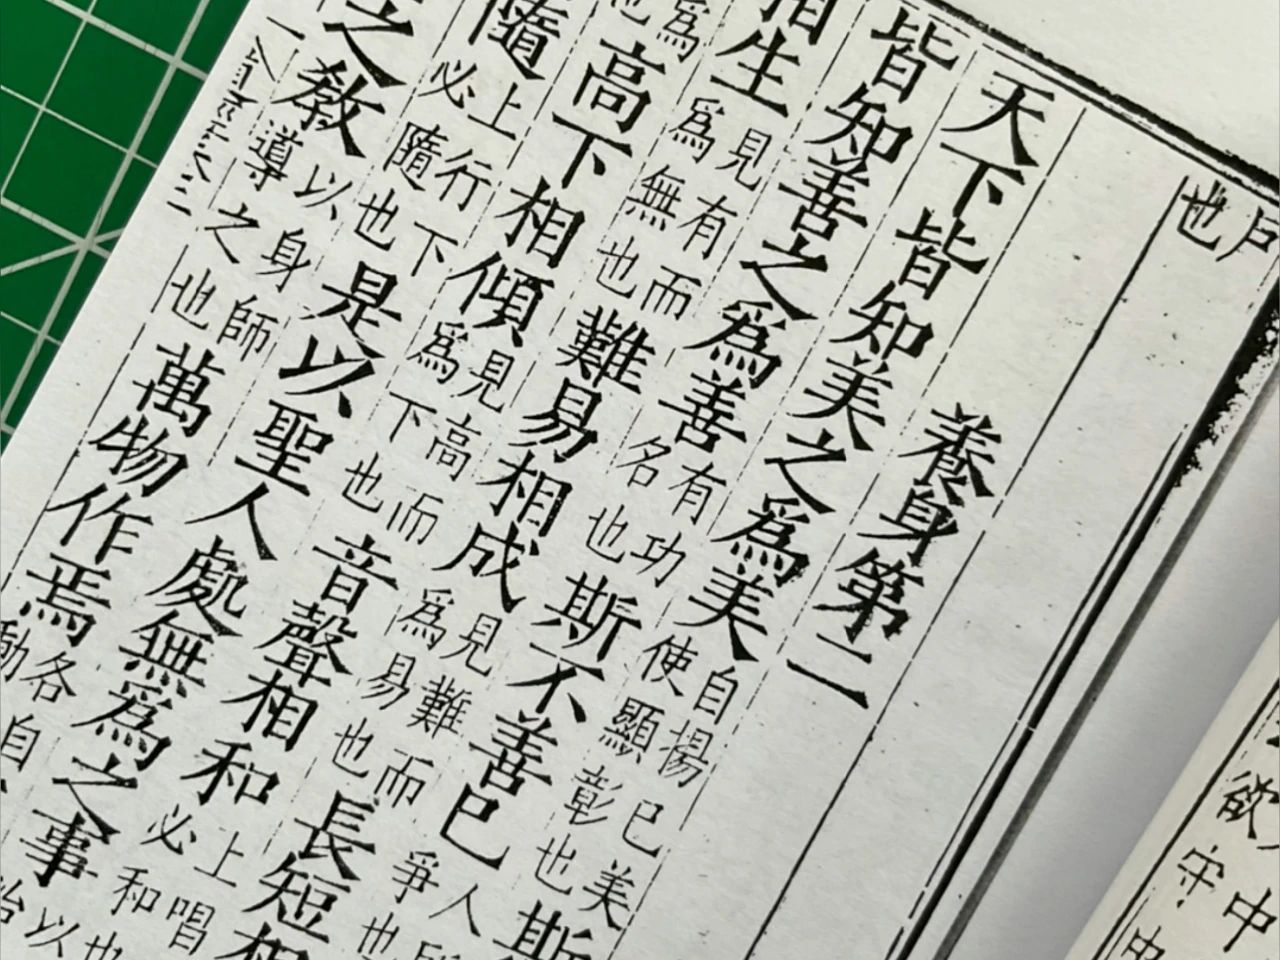 欲
中
守中
户也
養身第二
天下皆知美之爲美自揚己美使顯彰也斯
皆知善之爲善有功名也斯不善已人所爭也
相生見有而爲無也難易相成見難而爲易也長短相
爲也高下相傾見高而爲下也音聲相和上唱必和也
隨上行下必隨也是以聖人處無爲之事以
之教以身師導之也萬物作焉各自動